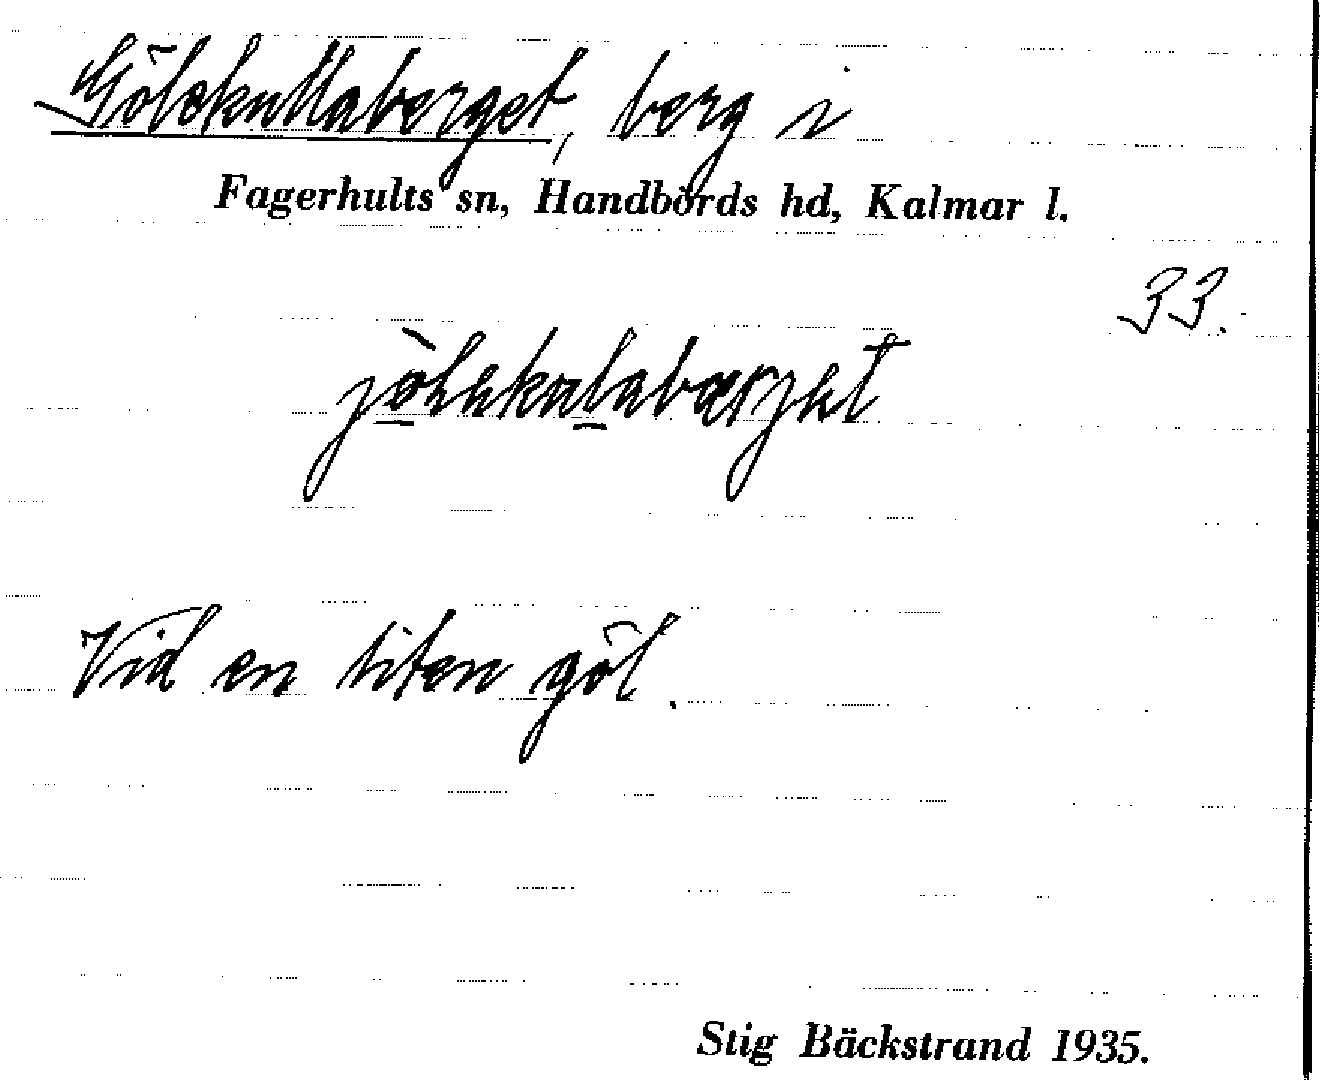 Gölekullaberget, berg i
Fagerhults sn, Handbörds hd, Kalmar l.
33.
Vid en liten göl.
Stig Bäckstrand 1935.